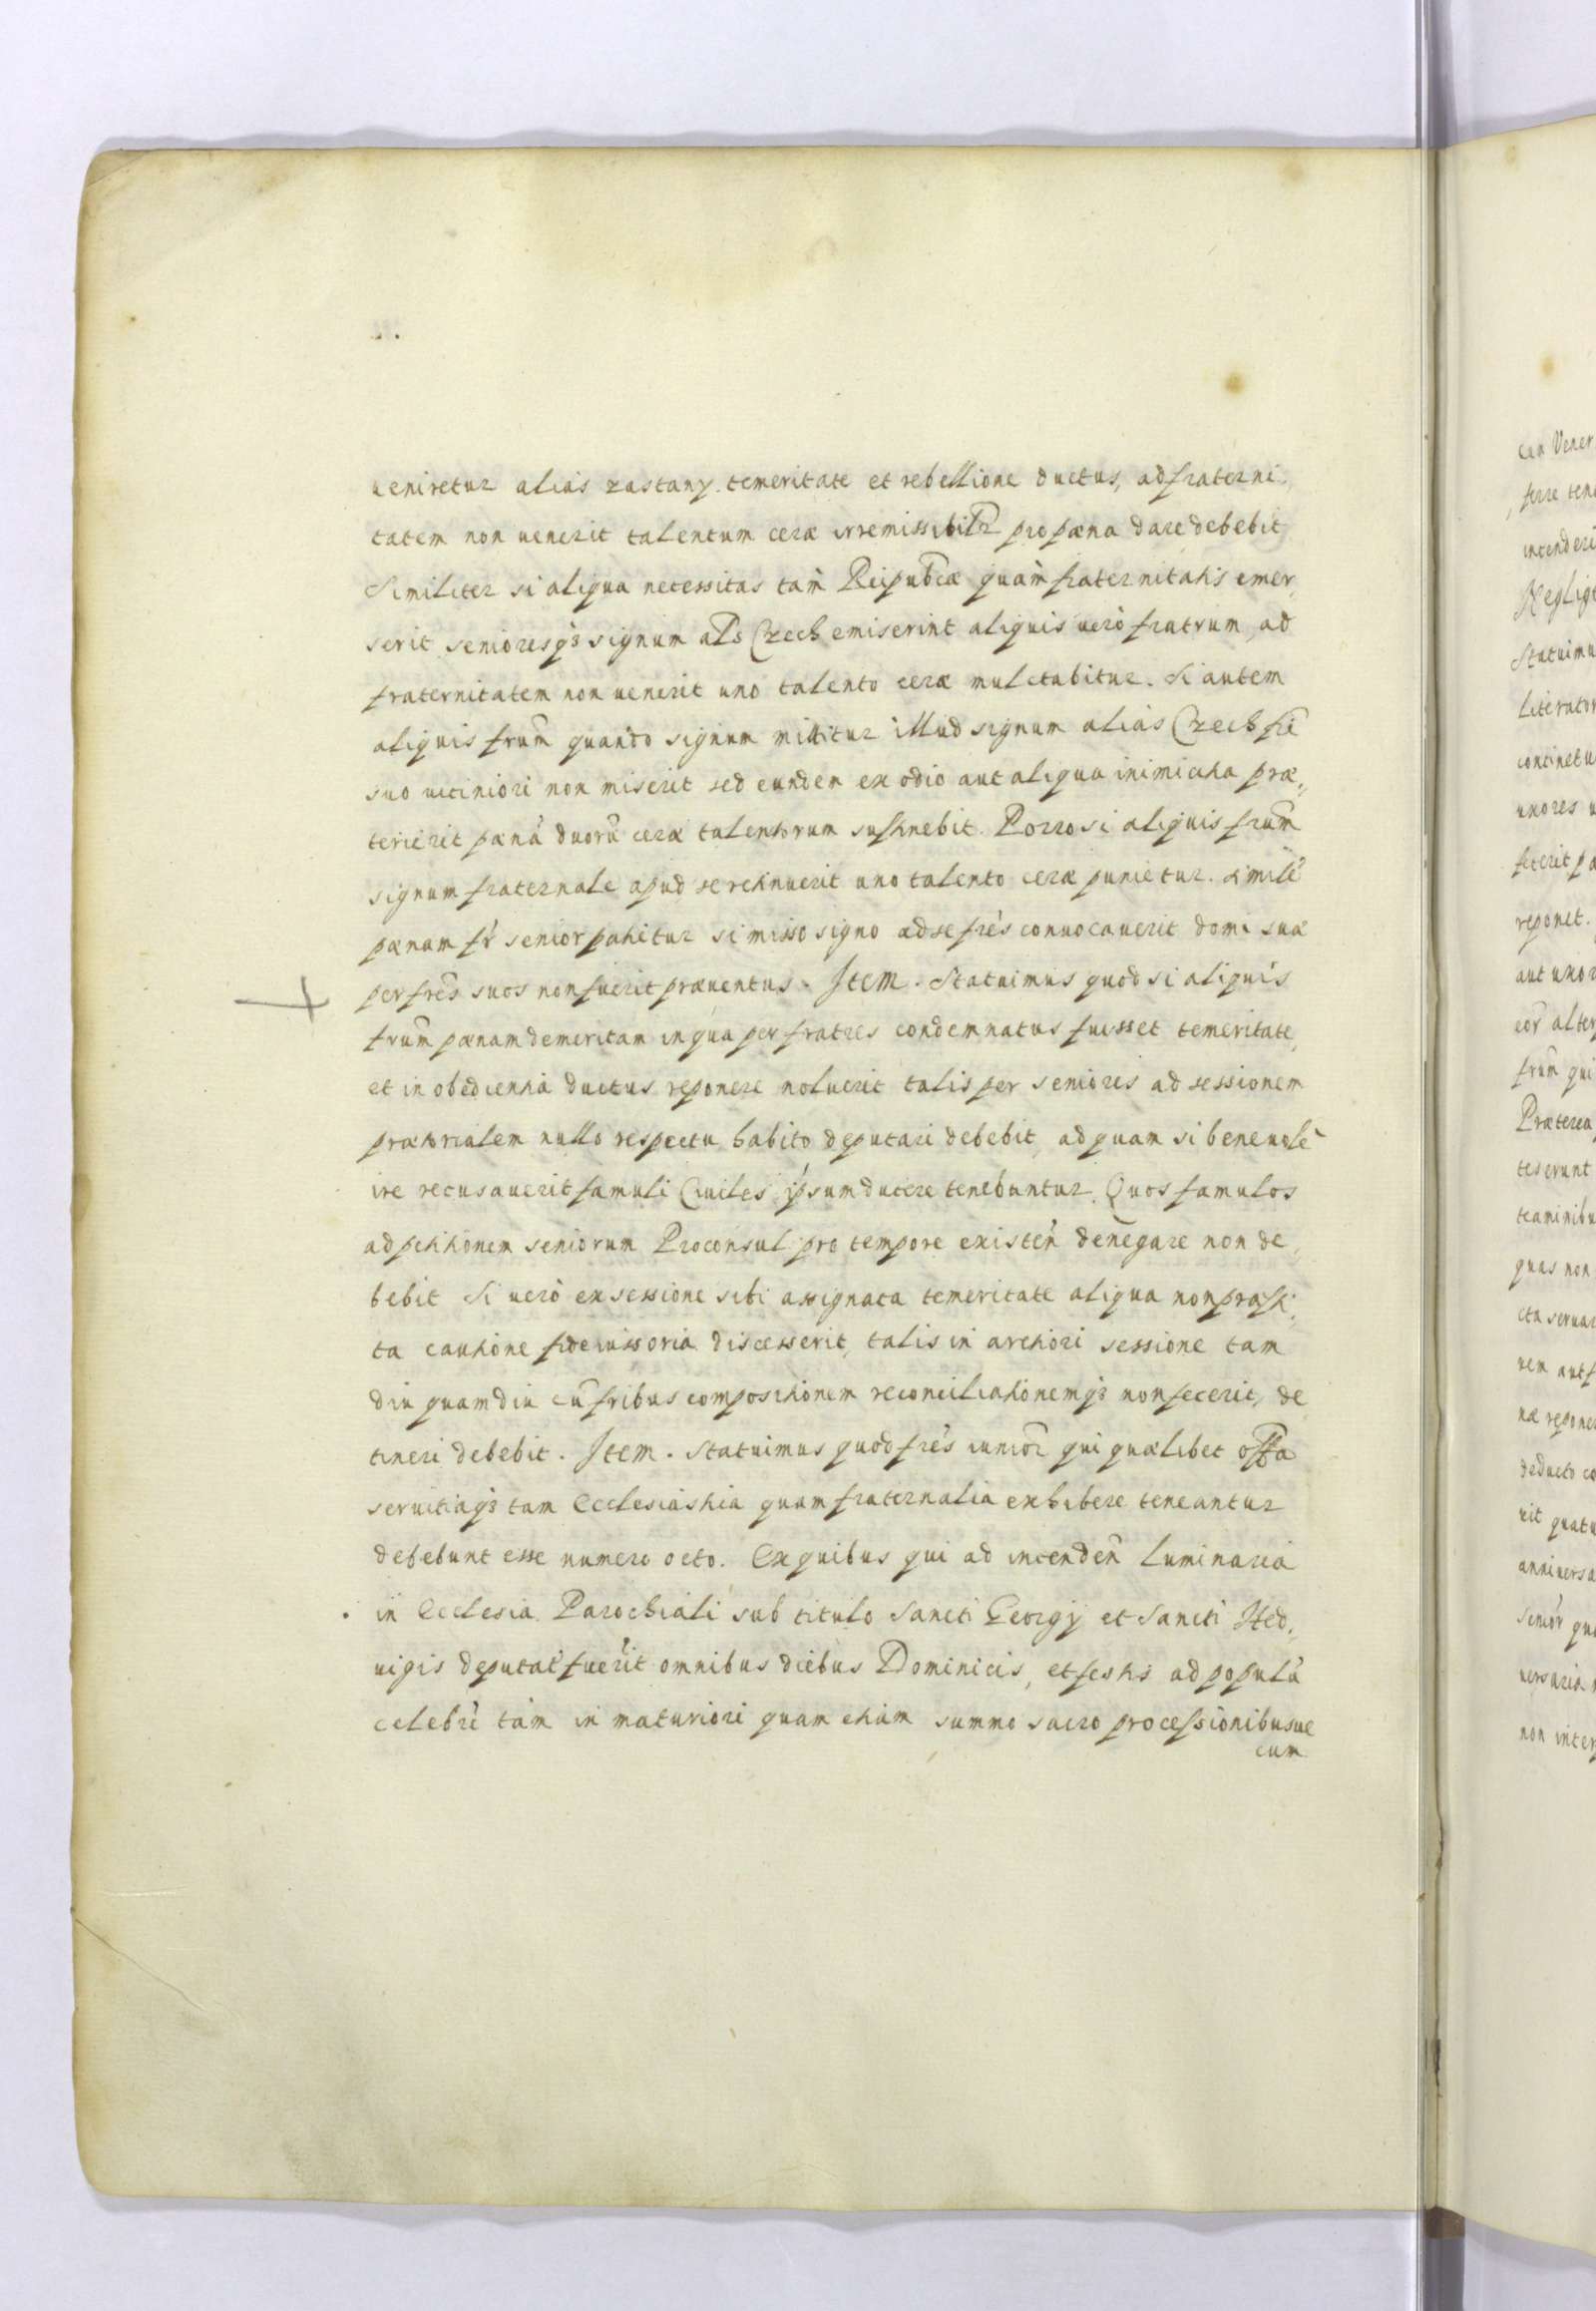 ueniretur alias zastany temeritate et rebellione ductus, ad fraterni,
tatem non uenerit talentum ceræ irremissibilr̃ pro pæna dare debebit
Similiter si aliqua necessitas tam̀ Reipub̃cæ quam̀ fraternitatis emer,
serit senioresqꝫ signum al̃s Czech emiserint aliquis uerò fratrum ad
fraternitatem non uenerit uno talento ceræ mulctabitur. Si autem
aliquis frum̃ quando signum mittitur illud signum aliàs Czech fri
suo uiciniori non miserit sed eundem ex odio aut aliqua inimicitia præ,,
terierit pænā duorū ceræ talentorum sustinebit. Porro si aliquis frum̃
signum fraternale apud se retinuerit uno talento ceræ punietur. Simile
pænam fr̃ senior patietur si misso signo ad se fres̃ conuocauerit domi suæ
per fres̃ suos non fuerit præuentus. Item. Statuimus quod si aliquis
frum̃ pænam demeritam in qua per fratres condemnatus fuisset temeritate,
et in obedientia ductus reponere noluerit talis per seniores ad sessionem
prætorialem nullo respectu habito deputari debebit, ad quam si beneuolè
ire recusauerit famuli Ciuiles ipsum ducere tenebuntur. Quos famulos
ad petitionem seniorum Proconsul pro tempore existeñ denegare non de,
bebit Si uerò ex sessione sibi assignata temeritate aliqua non præsti,
ta cautione fideiussoria discesserit, talis in arctiori sessione tam
diu quamdiu cū fribus compositionem reconciliationemqꝫ non fecerit, de
tineri debebit. Item. Statuimus quod fres̃ iunior̃ qui quælibet offa
seruitiaqꝫ tam Ecclesiastica quam fraternalia exhibere teneantur
debebunt esse numero octo. Ex quibus qui ad incendeñ Luminaria
in Ecclesia Parochiali sub titulo Sancti Georgij et Sancti Hed,,
uigis deputat̃ fuerit omnibus diebus Dominicis, et festis ad populū
celebrì tàm in maturiori quam etiàm summo sacro processionibusue
cum